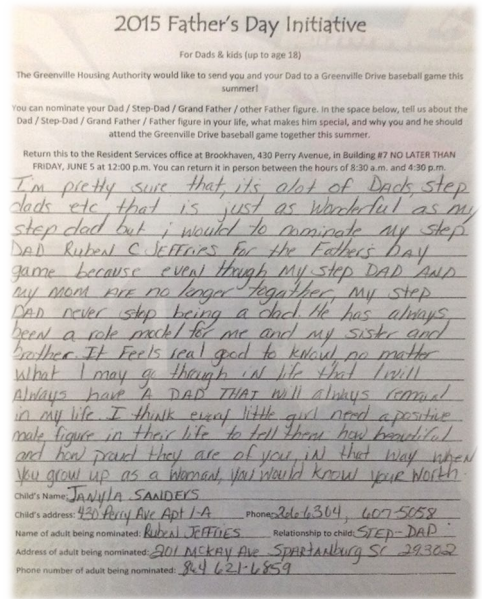 2015 Father's Day Initiative
For Dads & kids (up to age 18)
The Greenville Housing Authority would like to send you and your Dad to a Greenville Drive baseball game this
summer!
You can nominate your Dad / Step-Dad / Grand Father / other Father figure. In the space below, tell us about the
Dad / Step-Dad / Grand Father / Father figure in your life, what makes him special, and why you and he should
attend the Greenville Drive baseball game together this summer.
Return this to the Resident Services office at Brookhaven, 430 Perry Avenue, in Building #7 NO LATER THAN
FRIDAY, JUNE 5 at 12:00 p.m. You can return it in person between the hours of 8:30 a.m. and 4:30 p.m.
I'm pretty sure that, its alot of Dads, step
dads etc that is just as wonderful as my
step dad but i would to nominate my step
DAD Ruben C Jeffries For the Father's DAY
game because even though my step DAD AND
my mom ARE no longer together, my step
DAD never stop being a dad. He has always
been a role model for me and my sister and
brother. It Feels real good to know, no matter
what I may go through in life that I will
Always have A DAD THAT will always remain
in my life. I think every little girl need a positive
male figure in their life to tell them how beautiful
and how proud they are of you, in that way when
you grow up as a woman, you would know your worth.
Child's Name: JANYLA SANDERS
Child's address: 430 Perry Ave Apt 1-A Phone: 266 6304, 607-5058
Name of adult being nominated: Ruben Jeffries Relationship to child: STEP-DAD
Address of adult being nominated: 201 McKAY Ave Spartanburg Sc 29302
Phone number of adult being nominated: 864 621-6859